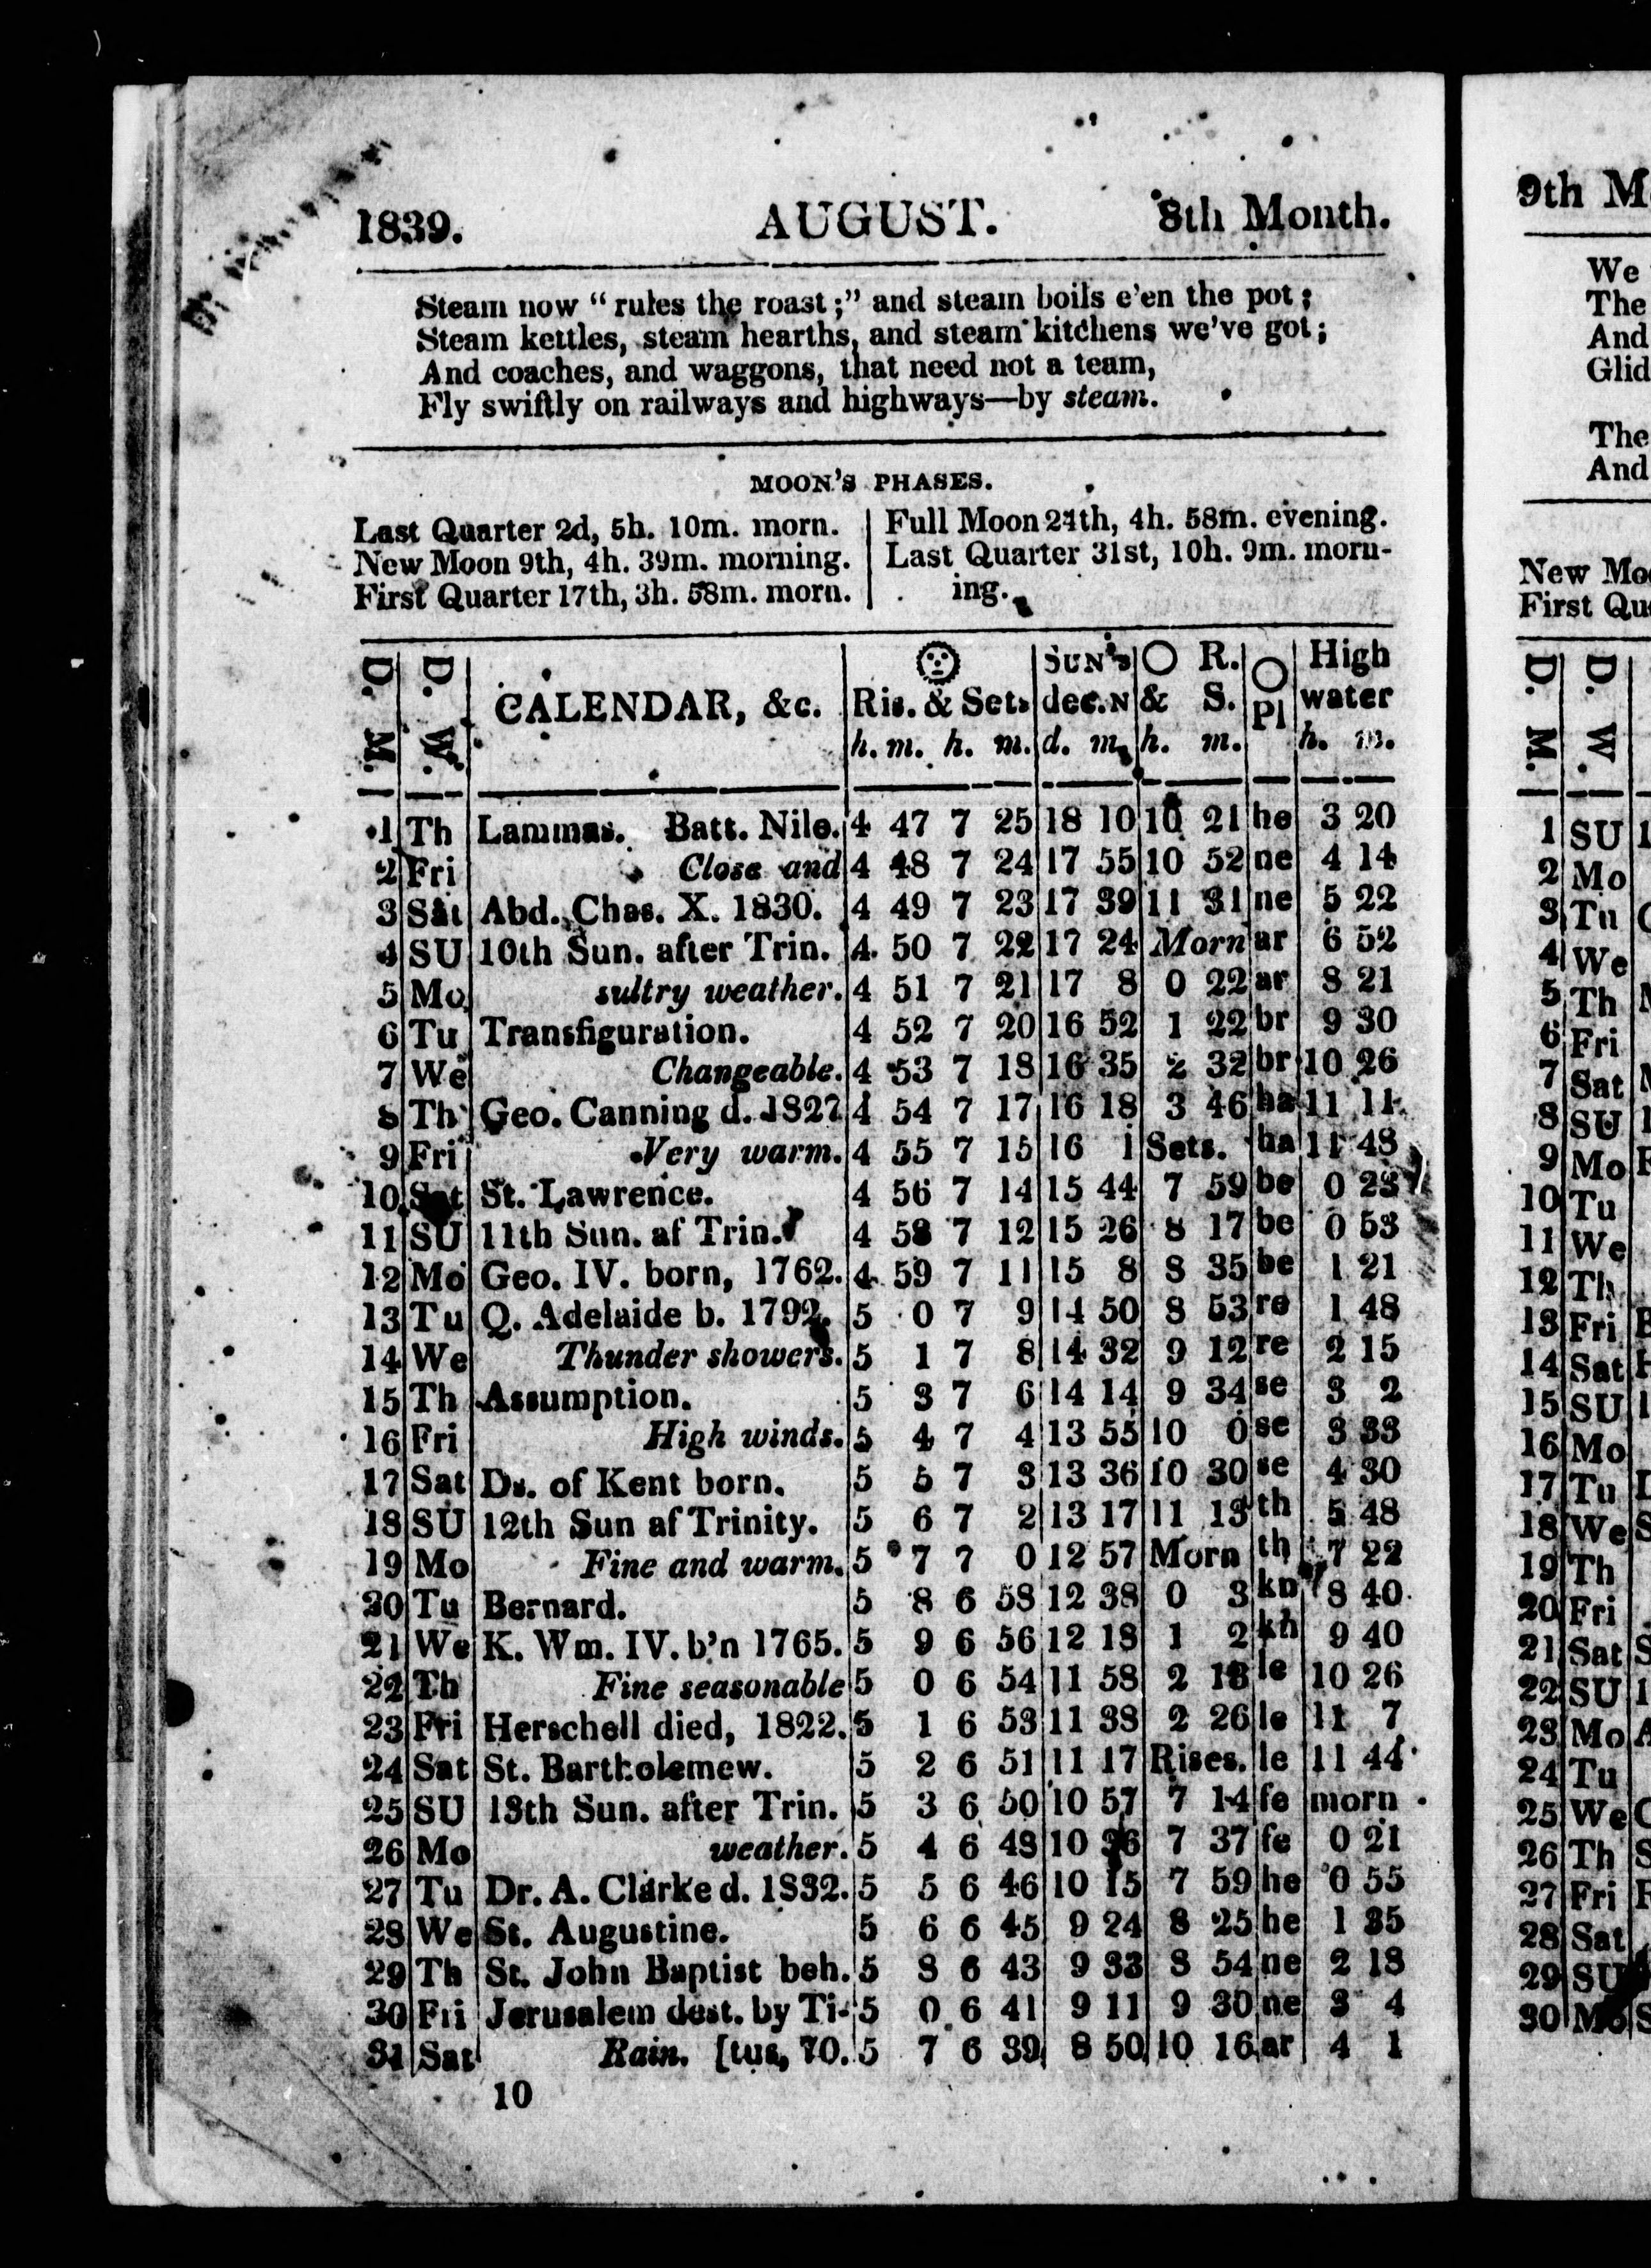 1839. AUGUST. 8th Month.
Steam now "rules the roast;" and steam boils e'en the pot;
Steam kettles, steam hearths, and steam kitchens we've got;
And coaches, and waggons, that need not a team,
Fly swiftly on railways and highways—by steam.
MOON'S PHASES.
Last Quarter 2d, 5h. 10m. morn.
New Moon 9th, 4h. 39m. morning.
First Quarter 17th, 3h. 58m. morn.
Full Moon 24th, 4h. 58m. evening.
Last Quarter 31st, 10h. 9m. morn-
ing.
D. M. D. W. CALENDAR, &c. Ris. & Set. h. m. h. m. SUN'S dec. N d. m. R. & S. h. m. Pl High water h. m.
1 Th Lammas. Batt. Nile. 4 47 7 25 18 10 10 21 he 3 20
2 Fri Close and 4 48 7 24 17 55 10 52 ne 4 14
3 Sat Abd. Chas. X. 1830. 4 49 7 23 17 39 11 31 ne 5 22
4 SU 10th Sun. after Trin. 4 50 7 22 17 24 Morn ar 6 52
5 Mo sultry weather. 4 51 7 21 17 8 0 22 ar 8 21
6 Tu Transfiguration. 4 52 7 20 16 52 1 22 br 9 30
7 We Changeable. 4 53 7 18 16 35 2 32 br 10 26
8 Th Geo. Canning d. 1827 4 54 7 17 16 18 3 46 ha 11 11
9 Fri Very warm. 4 55 7 15 16 1 Sets. ha 11 48
10 Sat St. Lawrence. 4 56 7 14 15 44 7 59 be 0 23
11 SU 11th Sun. af Trin. 4 58 7 12 15 26 8 17 be 0 53
12 Mo Geo. IV. born, 1762. 4 59 7 11 15 8 8 35 be 1 21
13 Tu Q. Adelaide b. 1792. 5 0 7 9 14 50 8 53 re 1 48
14 We Thunder showers. 5 1 7 8 14 32 9 12 re 2 15
15 Th Assumption. 5 3 7 6 14 14 9 34 se 3 2
16 Fri High winds. 5 4 7 4 13 55 10 0 se 3 33
17 Sat Ds. of Kent born. 5 5 7 3 13 36 10 30 se 4 30
18 SU 12th Sun af Trinity. 5 6 7 2 13 17 11 13 th 5 48
19 Mo Fine and warm. 5 7 7 0 12 57 Morn th 7 22
20 Tu Bernard. 5 8 6 58 12 38 0 3 kn 8 40
21 We K. Wm. IV. b'n 1765. 5 9 6 56 12 18 1 2 kh 9 40
22 Th Fine seasonable 5 0 6 54 11 58 2 13 le 10 26
23 Fri Herschell died, 1822. 5 1 6 53 11 38 2 26 le 11 7
24 Sat St. Bartholemew. 5 2 6 51 11 17 Rises. le 11 44
25 SU 13th Sun. after Trin. 5 3 6 50 10 57 7 14 fe morn
26 Mo weather. 5 4 6 48 10 36 7 37 fe 0 21
27 Tu Dr. A. Clarke d. 1832. 5 5 6 46 10 15 7 59 he 0 55
28 We St. Augustine. 5 6 6 45 9 24 8 25 he 1 35
29 Th St. John Baptist beh. 5 8 6 43 9 33 8 54 ne 2 18
30 Fri Jerusalem dest. by Ti- 5 0 6 41 9 11 9 30 ne 3 4
31 Sat Rain. [tus, 70. 5 7 6 39 8 50 10 16 ar 4 1
10
9th M
We
The
And
Glid
The
And
New Moo
First Qu
D. M. D. W.
1 SU 1
2 Mo
3 Tu
4 We
5 Th
6 Fri
7 Sat
8 SU 1
9 Mo
10 Tu
11 We
12 Th
13 Fri
14 Sat
15 SU
16 Mo
17 Tu
18 We S
19 Th
20 Fri
21 Sat S
22 SU 1
23 Mo A
24 Tu
25 We
26 Th S
27 Fri
28 Sat
29 SU
30 Mo S